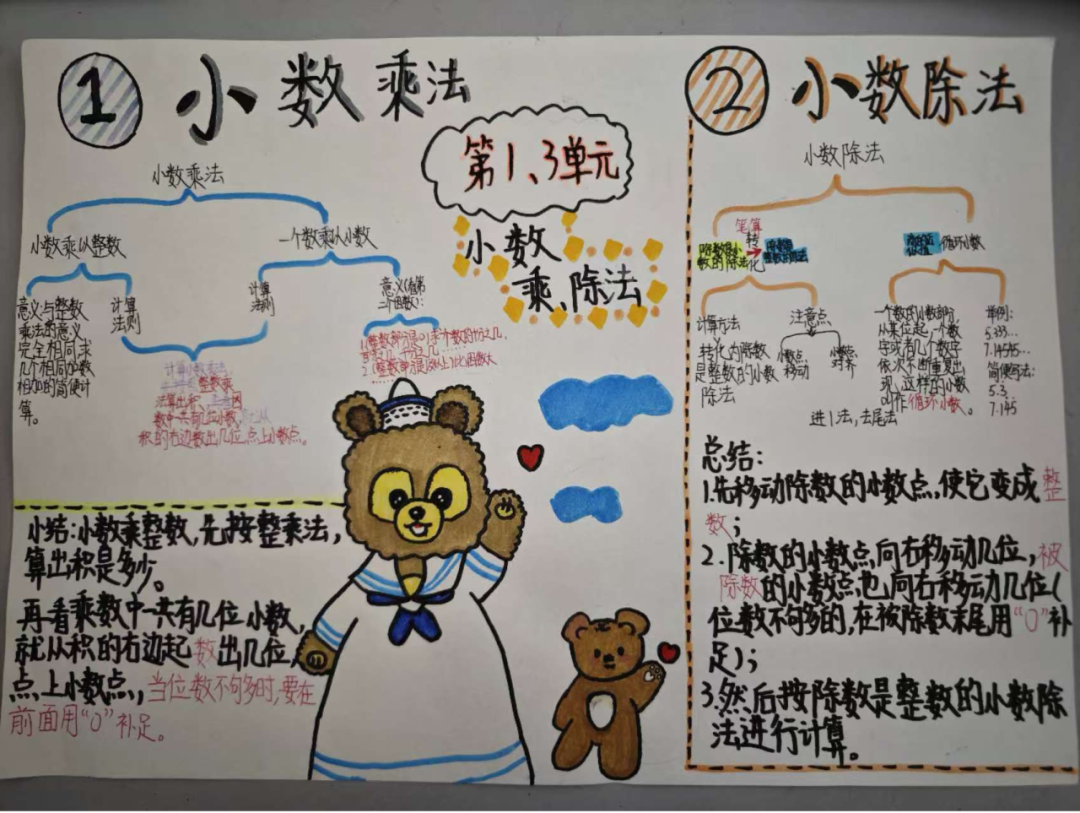 1 小数乘法
小数乘法
小数乘以整数
一个数乘以小数
意义:与整数
乘法的意义
完全相同求
几个相同加数
相加的简便计
算。
计算
法则
计算
法则
意义(看第
二个因数):
计算小数乘法,
整数乘
法算出积,
数中一共有几位小数,
积的右边数出几位,点上小数点。
小结:小数乘整数,先按整乘法,
算出积是多少。
再看乘数中一共有几位小数,
就从积的右边起数出几位,
点上小数点,当位数不够多时,要在
前面用“0”补足。
第1、3单元
小数
乘、除法
2 小数除法
小数除法
笔算
除数是小
数的除法
转
化
循环小数
计算方法
转化为除数
是整数的小数
除法
注意点
小数点
移动
对齐
一个数的小数部分,
从某位起,一个数
字或者几个数字
依次不断重复出
现,这样的小数
叫作循环小数。
举例:
5.333...
7.14545...
简便写法:
5.3
7.145
进1法,去尾法
总结:
1.先移动除数的小数点,使它变成整
数;
2.除数的小数点向右移动几位,被
除数的小数点也向右移动几位(
位数不够多的,在被除数末尾用“0”补
足);
3.然后按除数是整数的小数除
法进行计算。